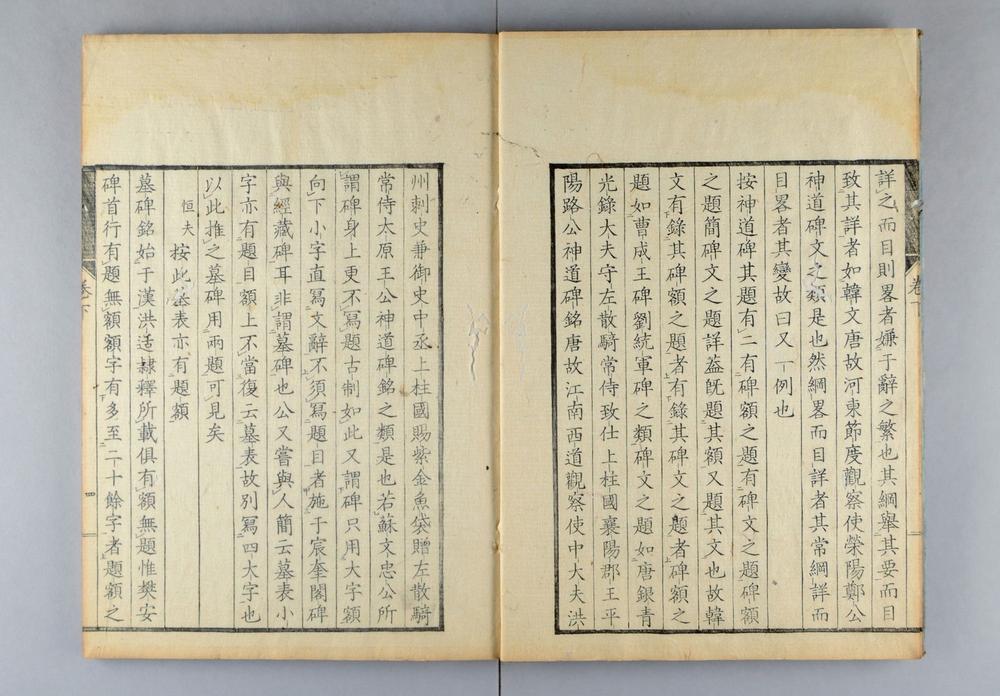 詳之而目則畧者嫌于辭之繁也其綱舉其要而目
致其詳者如韓文唐故河東節度觀察使滎陽鄭公
神道碑文之類是也然綱畧而目詳者其常綱詳而
目畧者其變故曰又一例也
按神道碑其題有二有碑額之題有碑文之題碑額
之題簡碑文之題詳葢旣題其額又題其文也故韓
文有錄其碑額之題者有錄其碑文之題者碑額之
題如曹成王碑劉統軍碑之類碑文之題如唐銀青
光錄大夫守左散騎常侍致仕上柱國襄陽郡王平
陽路公神道碑銘唐故江南西道觀察使中大夫洪
州刺史兼御史中丞上柱國賜紫金魚袋贈左散騎
常侍太原王公神道碑銘之類是也若蘇文忠公所
謂碑身上更不寫題古制如此又謂碑只用大字額
向下小字直寫文辭不須寫題目者施于宸奎閣碑
與經藏碑耳非謂墓碑也公又嘗與人簡云墓表小
字亦有題目額上不當復云墓表故別寫四大字也
以此推之墓碑用兩題可見矣
恒夫 按此墓表亦有題額
墓碑銘始于漢洪适隷釋所載俱有額無題惟樊安
碑首行有題無額額字有多至二十餘字者題額之
卷下
四
卷